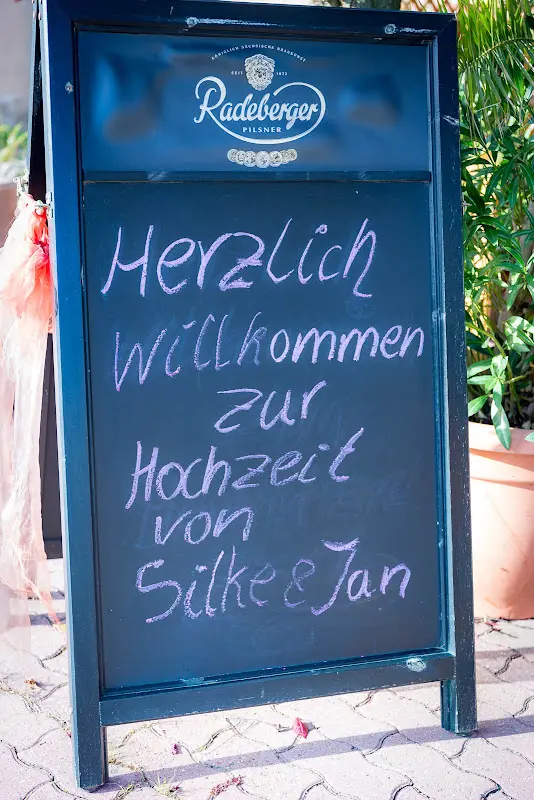 KÖNIGLICH SÄCHSISCHE BRAUKUNST
SEIT 1872
Radeberger
PILSNER
Herzlich
Willkommen
zur
Hochzeit
von
Silke & Jan